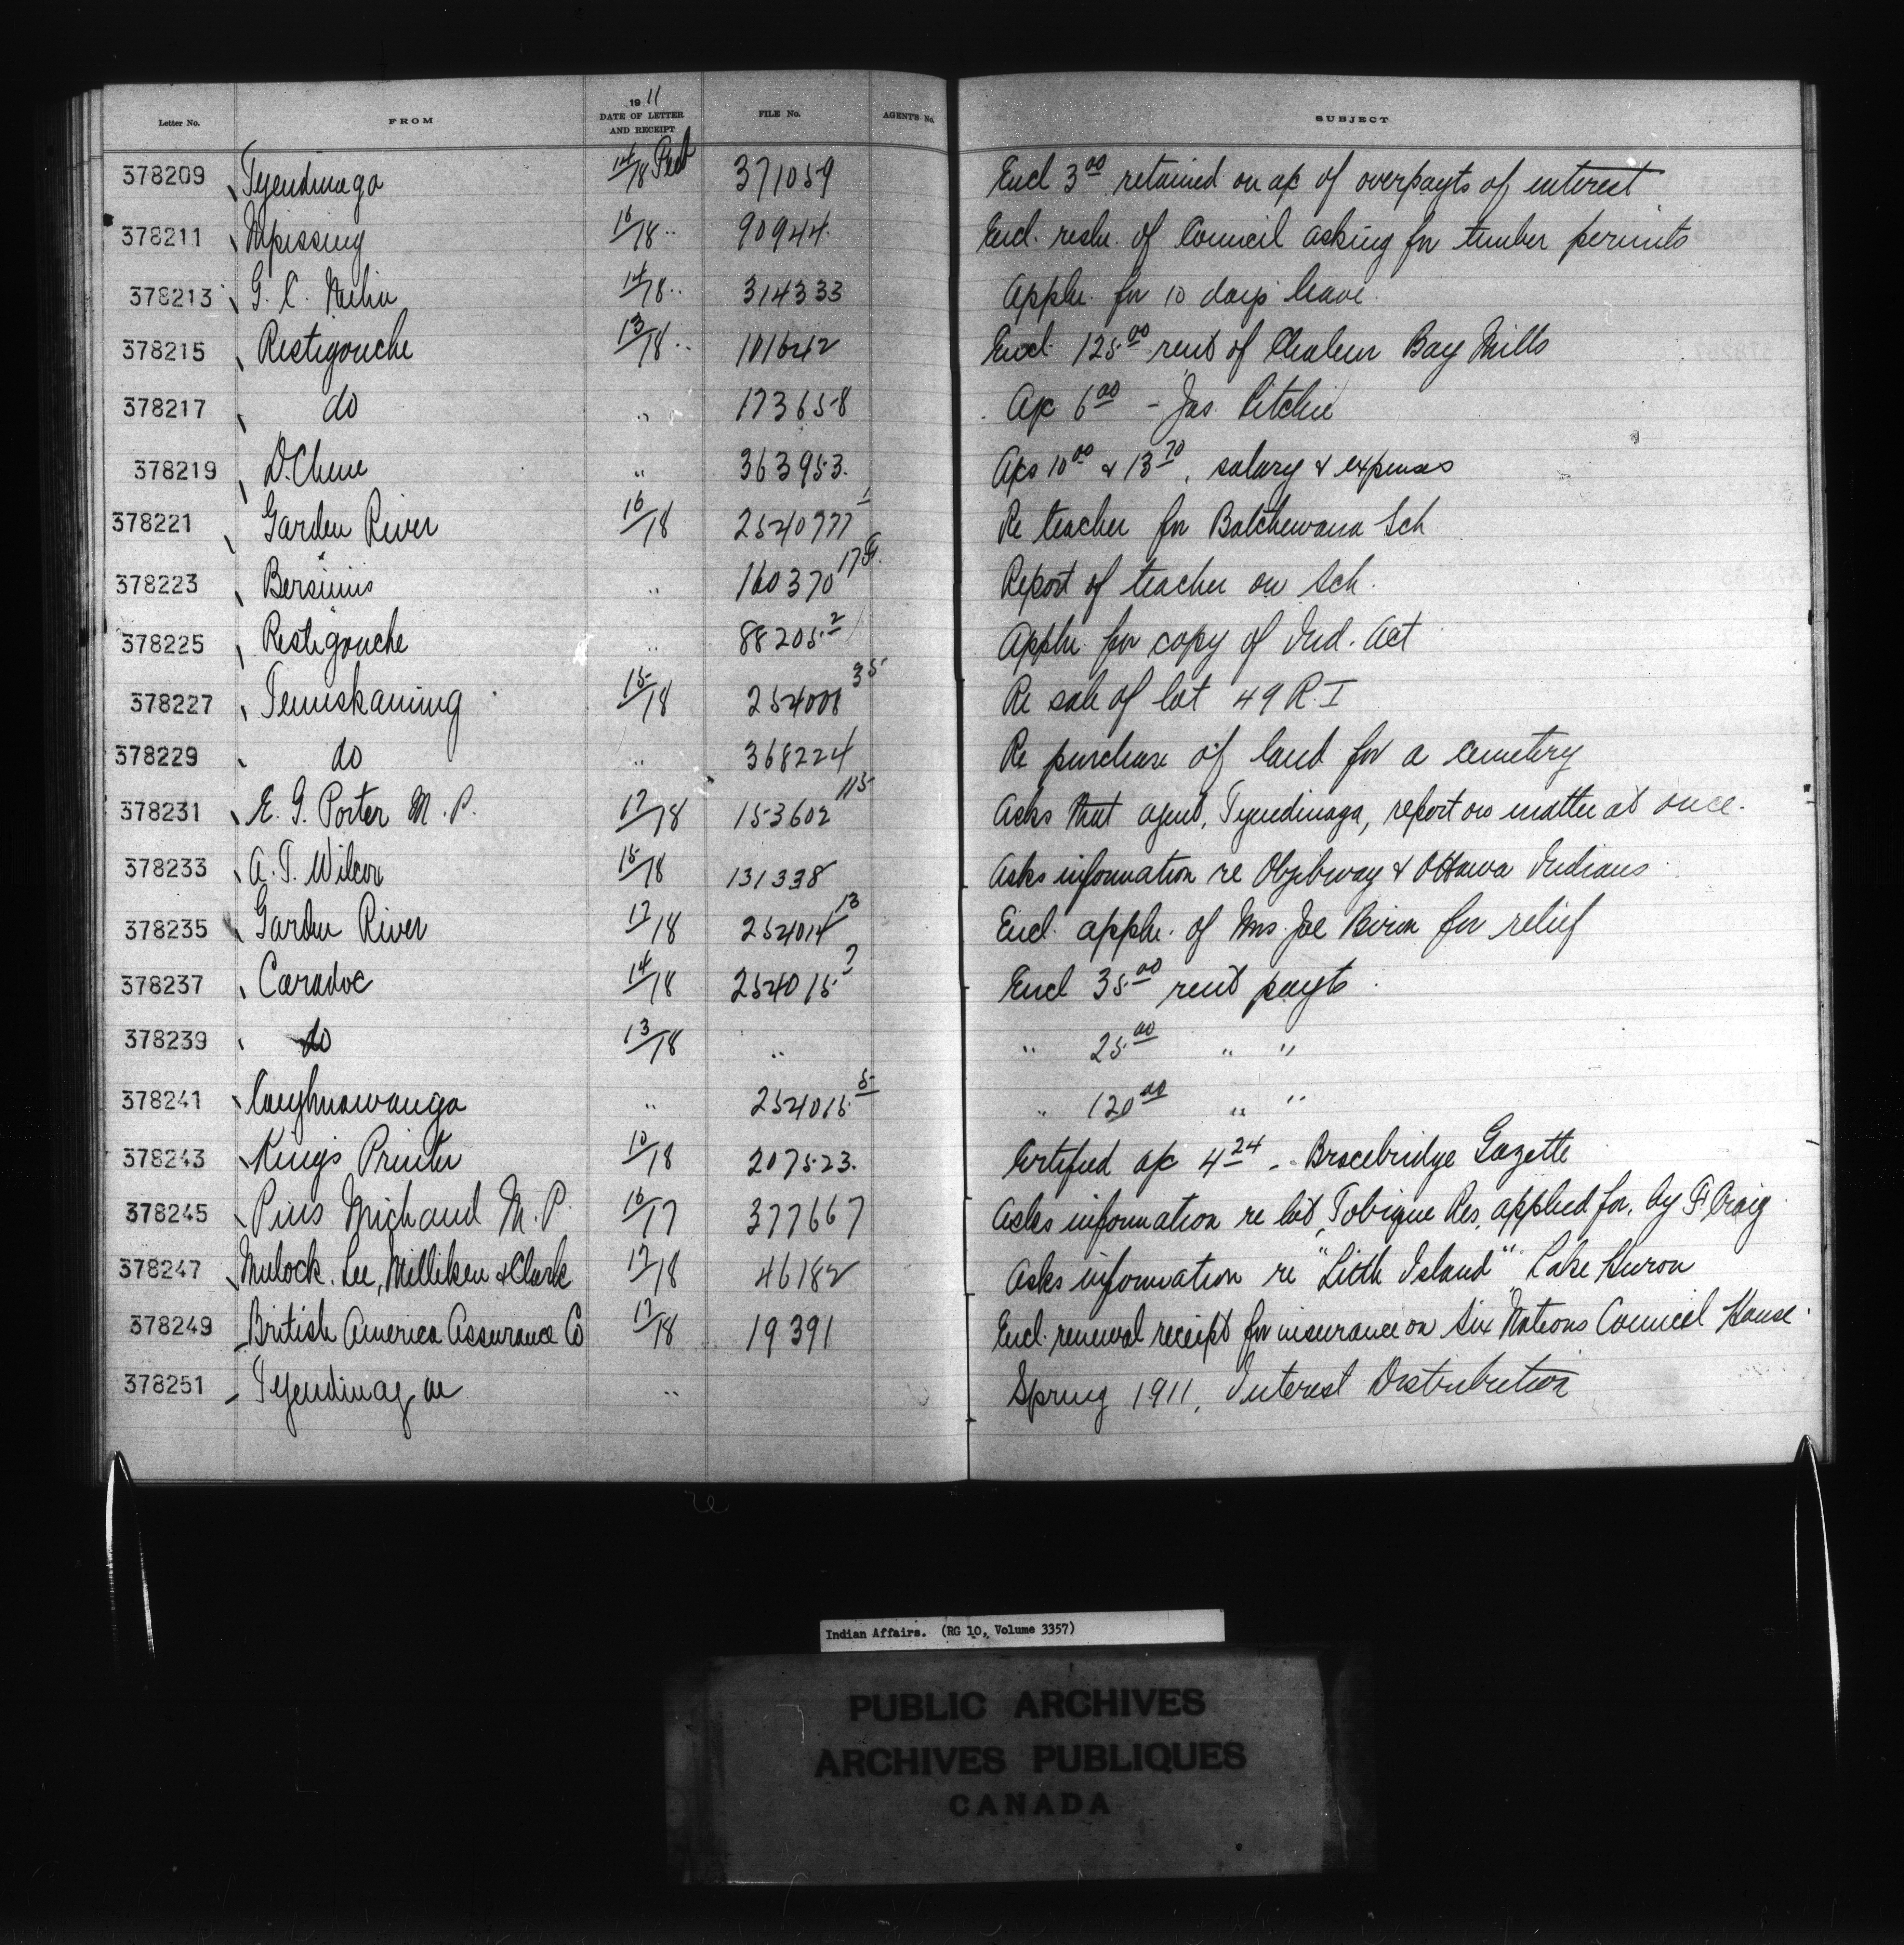 Letter No. FROM 1911 DATE OF LETTER AND RECEIPT FILE No. AGENTS No. SUBJECT
378209 Tyendinaga 14/18 371059 Encl 3.00 retained on a/c of overpayts of interest
378211 Nipissing 16/18 " 90944 Encl. resln. of Council asking for timber permits
378213 G. C. 14/18 " 314333 Appln. for 10 days leave.
378215 Restigouche 13/18 " 101642 Encl. 125.00 rent of Chaleur Bay Mills
378217 do " 173658 A/c 6.00 - Jas. Ritchie
378219 D. Chene " 363953. A/cs 10.00 & 13.70, salary & expenses
378221 Garden River 16/18 254077 1 Re teacher for Batchewana Sch
378223 Bersimis " 160370 Report of teacher on Sch.
378225 Restigouche " 88205 2 Appln. for copy of Ind. Act
378227 Temiskaming 15/18 254008 35 Re sale of lot 49 R. I
378229 do " 368224 Re purchase of land for a cemetery
378231 E. G. Porter M. P. 17/18 153602 115 Asks that agent, Tyendinaga, report on matter at once.
378233 A. T. Wilcox 15/18 131338 Asks information re Objibway & Ottawa Indians
378235 Garden River 17/18 254014 13 Encl. appln. of Mrs. Joe Biron for relief
378237 Caradoc 14/18 254015 7 Encl 35.00 rent payts.
378239 do 13/18 " " 25.00 " "
378241 Caughnawauga " 254015 5 " 120.00 " "
378243 King's Printer 10/18 207523. Certified a/c 4.24 - Bracebridge Gazette
378245 Pius Michaud M. P. 16/17 377667 Asks information re lot, Tobique Res. applied for, by F. Craig
378247 Mulock, Lee, Milliken & Clark 17/18 46182 Asks information re "Little Island" Lake Huron
378249 British America Assurance Co 17/18 19391 Encl. renewal receipt for insurance on Six Nations Council House.
378251 Tyendinaga " Spring 1911, Interest Distribution
Indian Affairs. (RG 10, Volume 3357)
PUBLIC ARCHIVES
ARCHIVES PUBLIQUES
CANADA